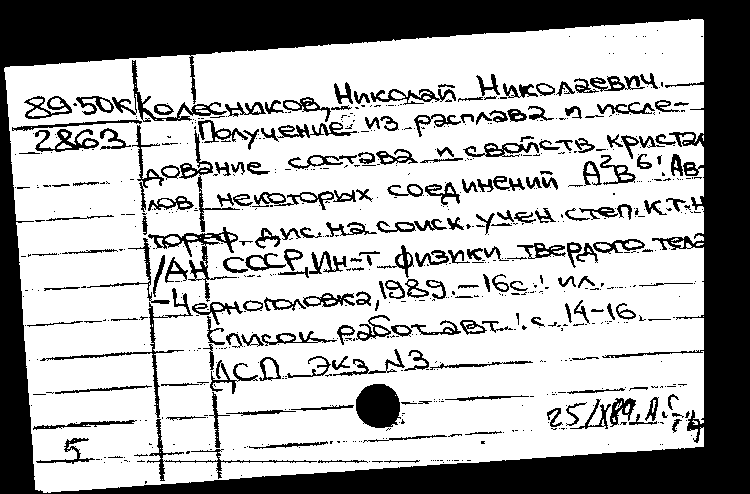 89-50К Колесников, Николай Николаевич.
2863 Получение из расплава и иссле-
дование состава и свойств кристал-
лов некоторых соединений А²В⁶: Ав-
тореф. дис. на соиск. учен. степ. к.т.н
/АН СССР, Ин-т физики твердого тела
- Черноголовка, 1989. - 16с.: ил.
Список работ авт.: с. 14-16.
ДСП. Экз. N3.
25/X89.
5